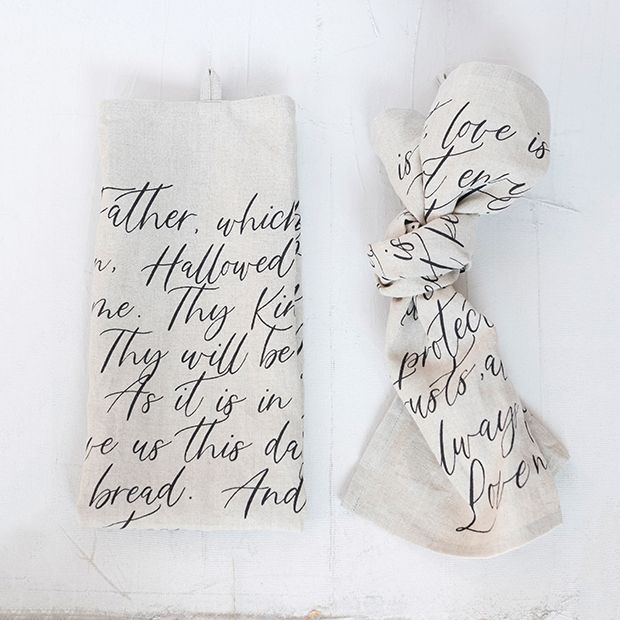 Father, which
n, Hallowed
me. Thy Kin
Thy will be
As it is in
ve us this da
bread. And
love is
is
t env
is
protec
usts, a
lway
Love n